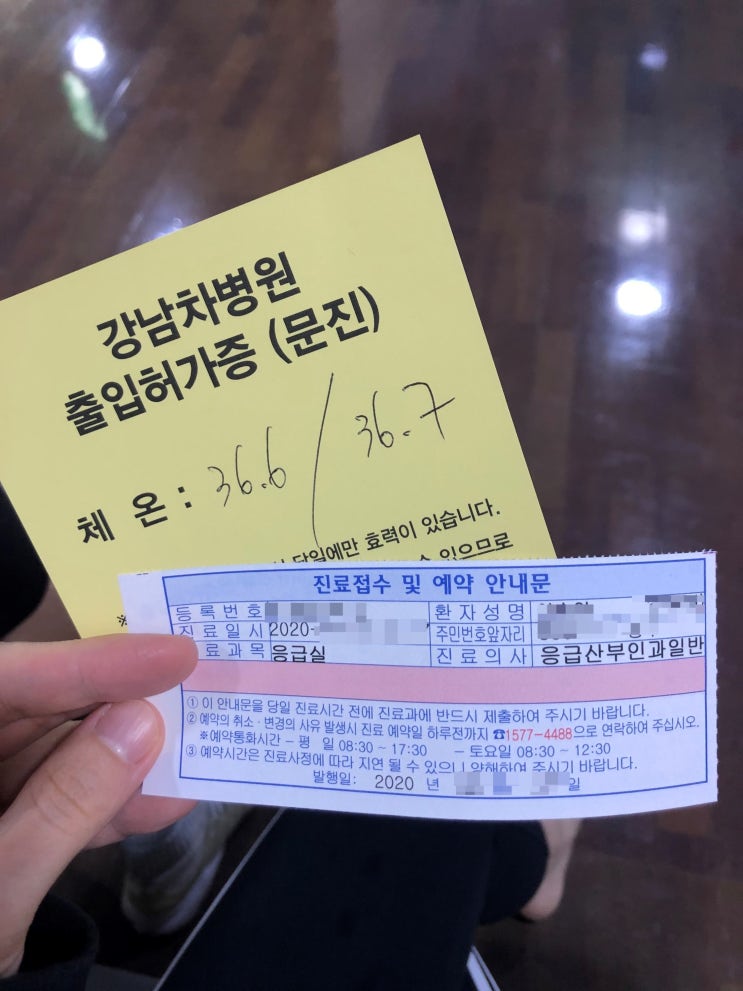 강남차병원
출입허가증 (문진)
체 온 : 36.6 / 36.7
당일에만 효력이 있습니다.
있으므로
※
진료접수 및 예약 안내문
등록번호 환자성명
진료일시 2020- 주민번호앞자리
료과목 응급실 진료의사 응급산부인과일반
① 이 안내문을 당일 진료시간 전에 진료과에 반드시 제출하여 주시기 바랍니다.
② 예약의 취소·변경의 사유 발생시 진료 예약일 하루전까지 ☎1577-4488으로 연락하여 주십시오.
※예약통화시간 - 평 일 08:30 ~ 17:30 - 토요일 08:30 ~ 12:30
③ 예약시간은 진료사정에 따라 지연 될 수 있으니 양해하여 주시기 바랍니다.
발행일: 2020 년 일